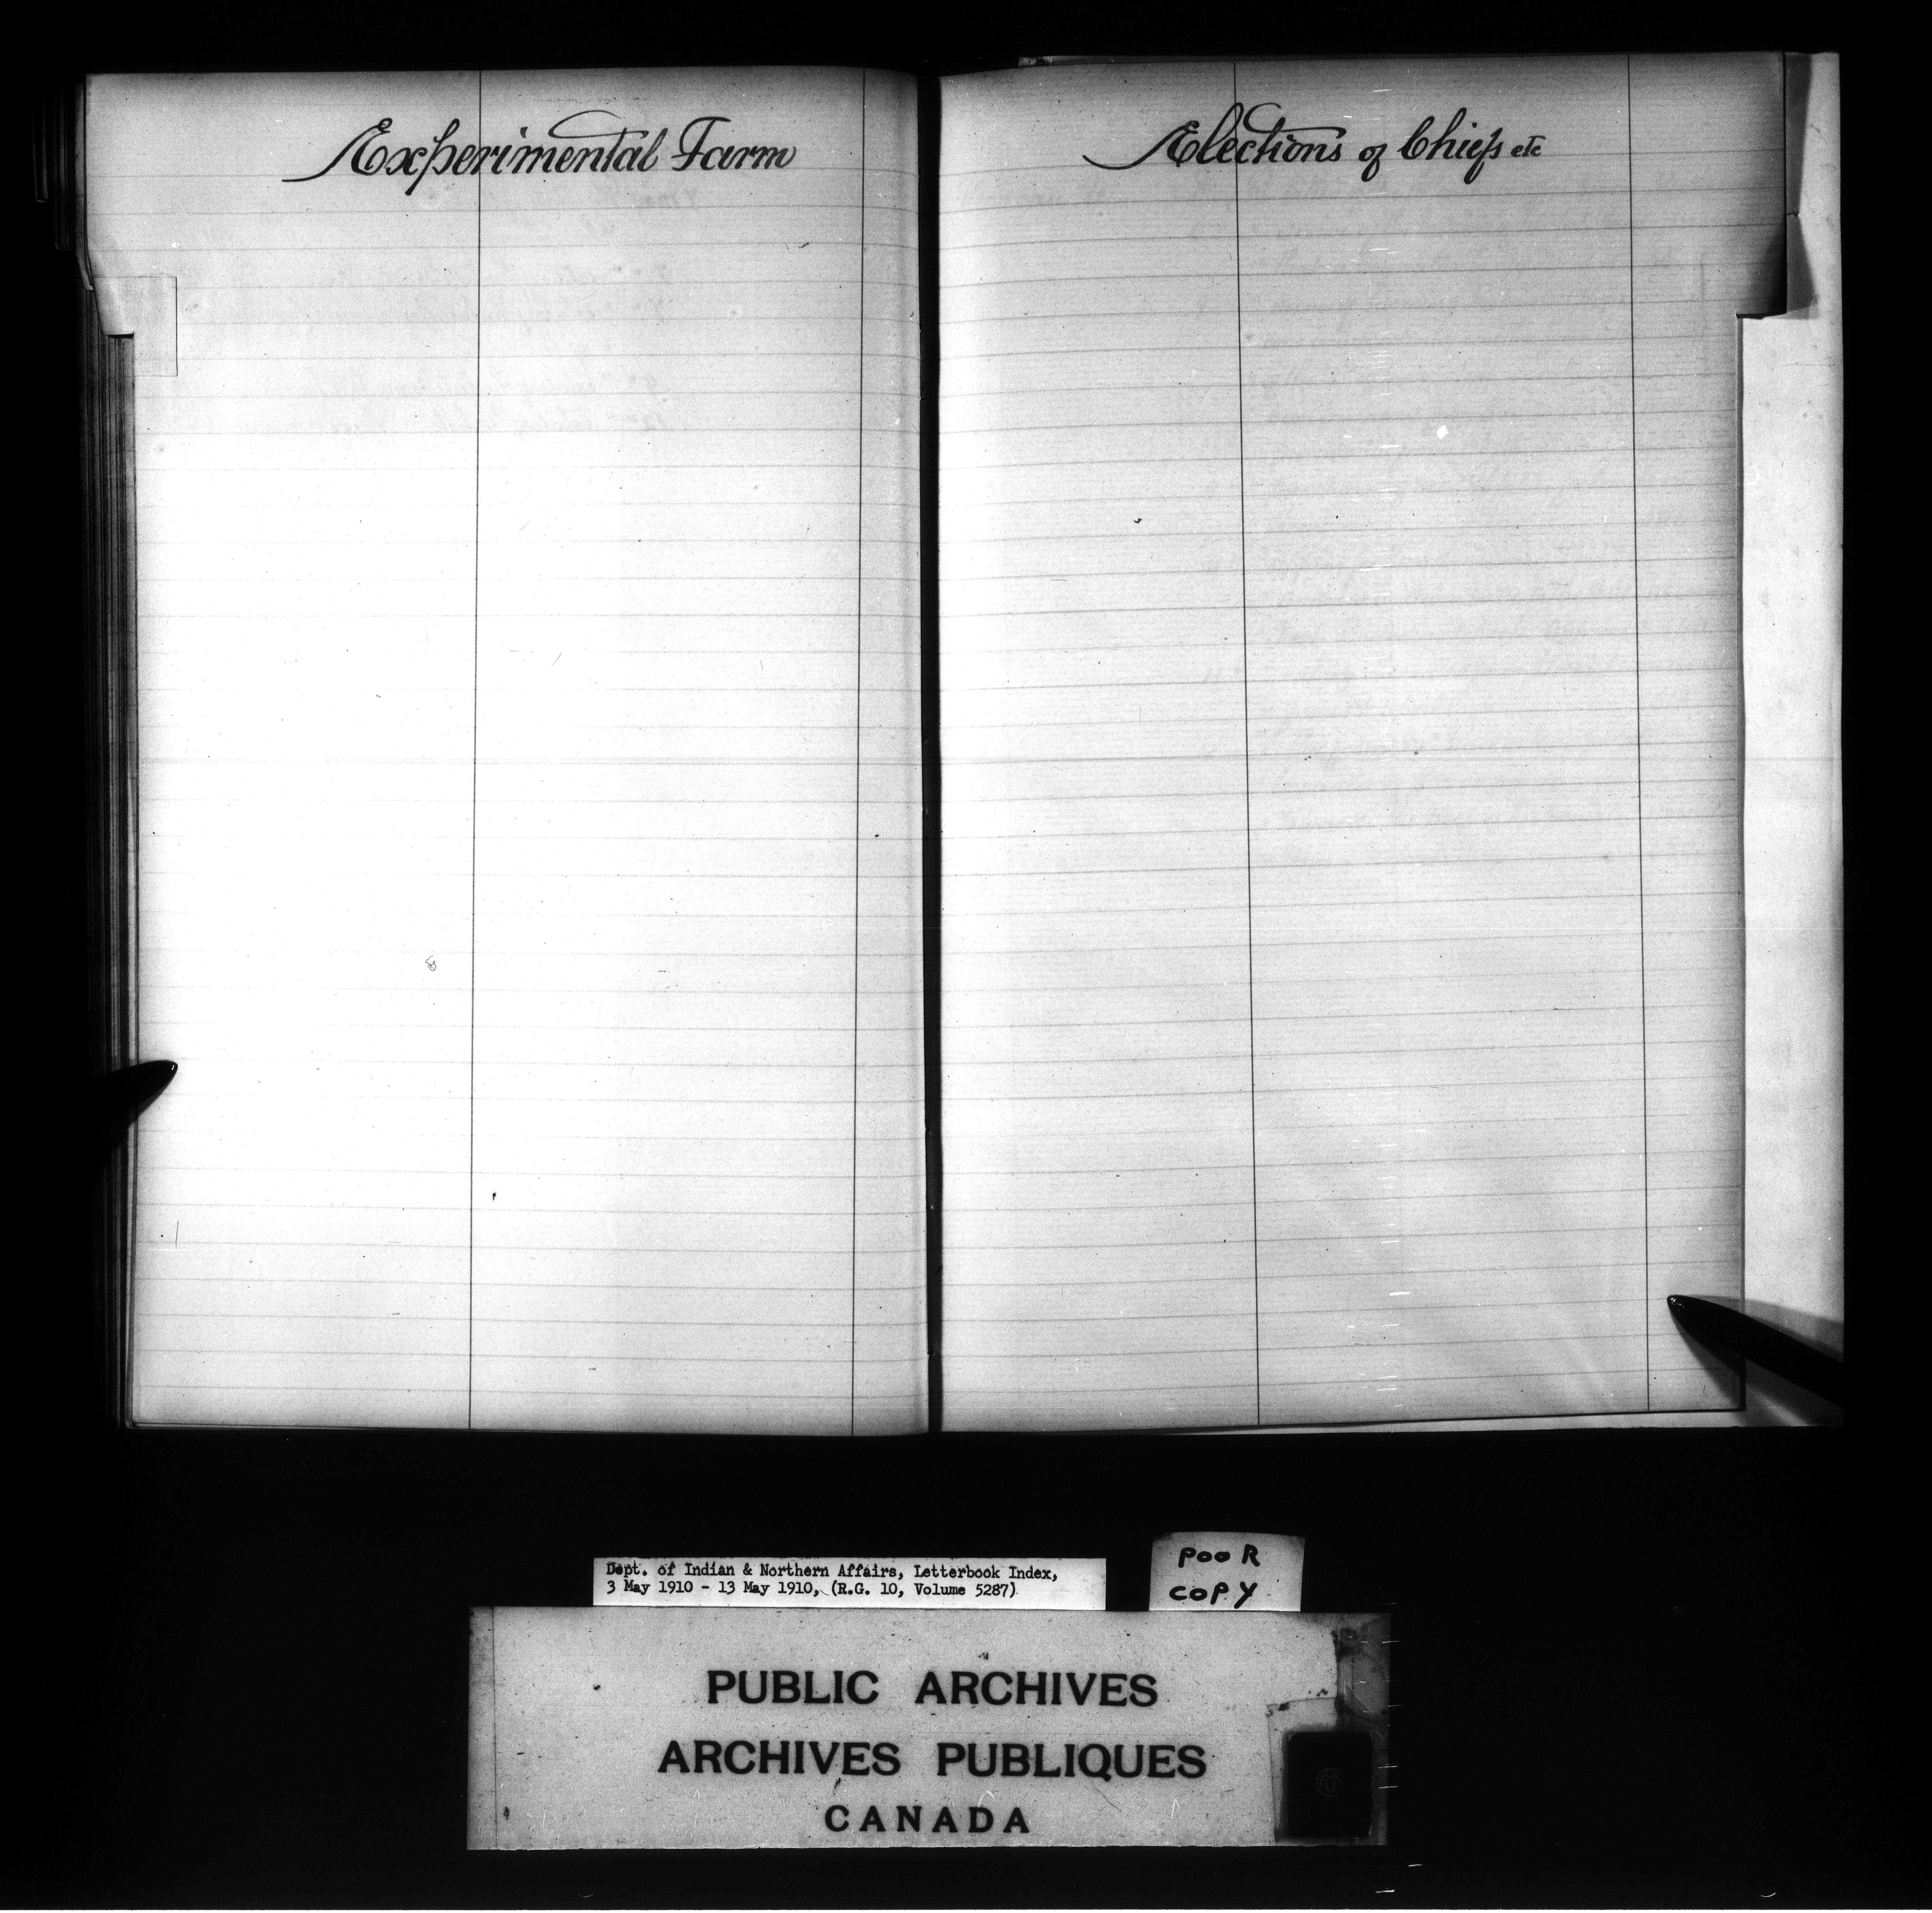 Experimental Farm
Elections of Chiefs etc
Dept. of Indian & Northern Affairs, Letterbook Index,
3 May 1910 - 13 May 1910, (R.G. 10, Volume 5287)
POOR
COPY
PUBLIC ARCHIVES
ARCHIVES PUBLIQUES
CANADA